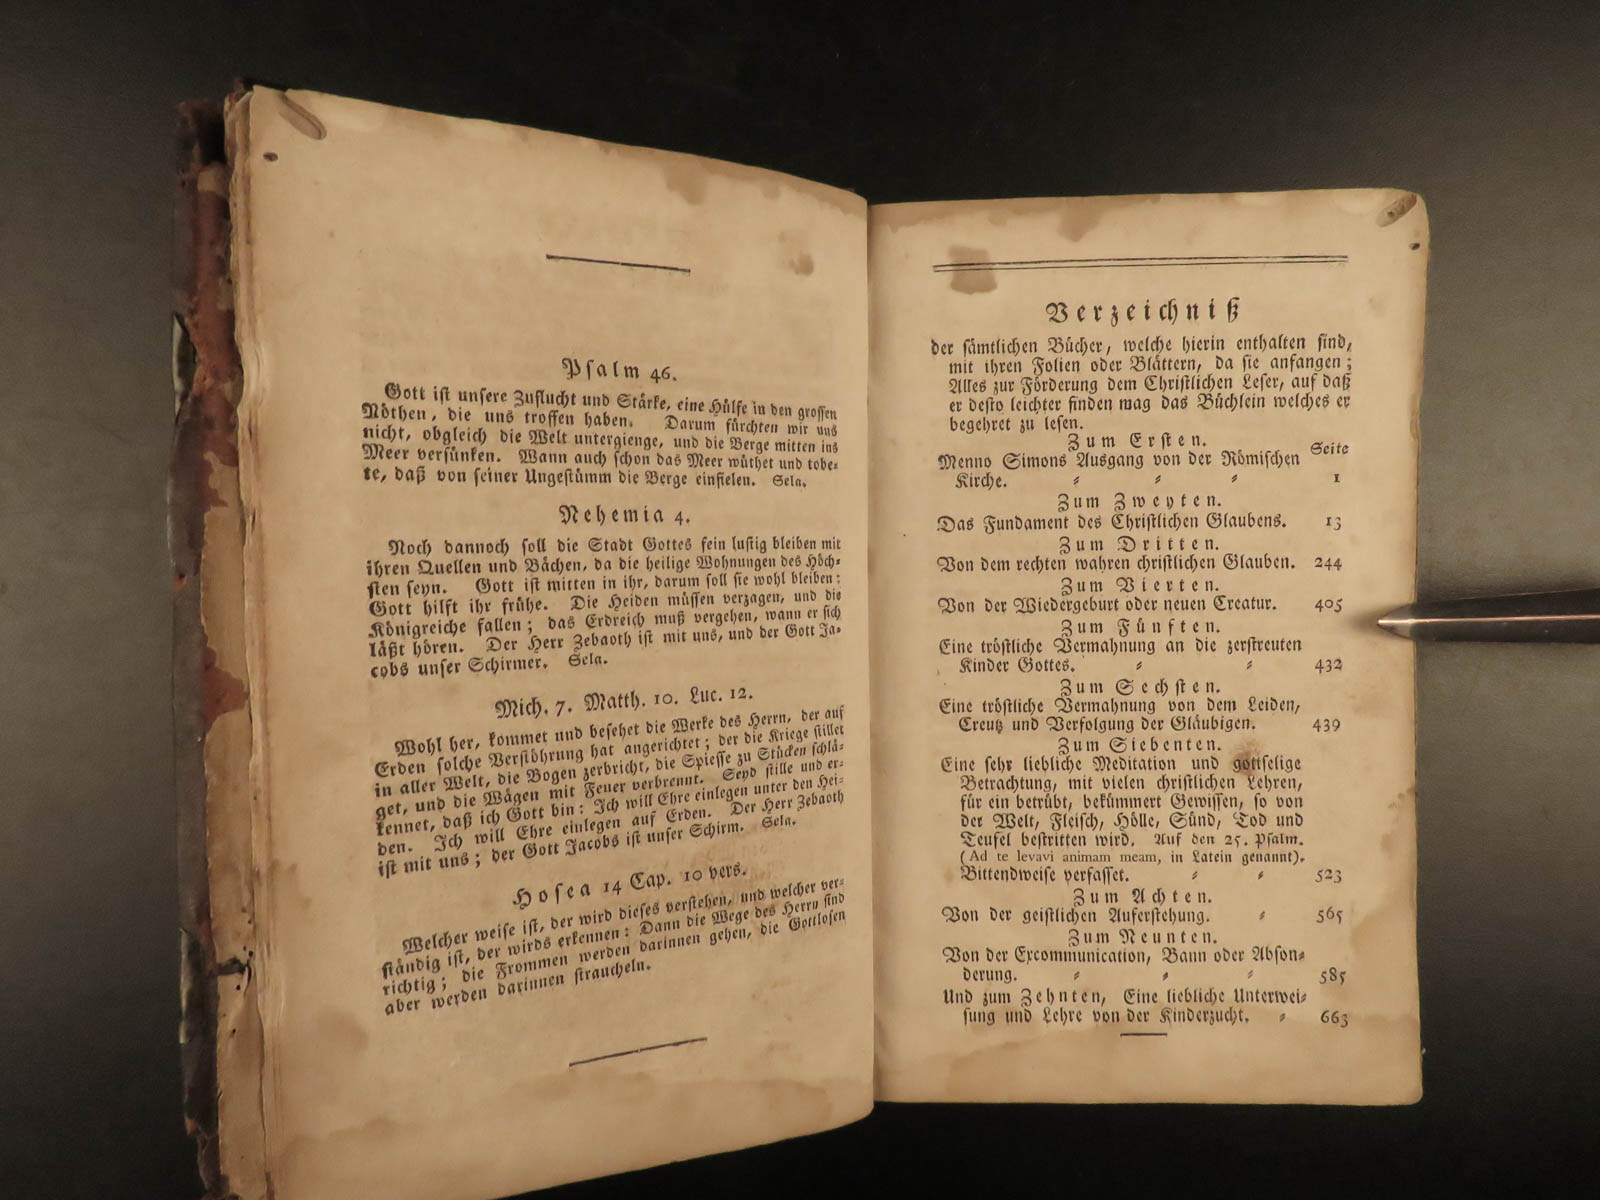 Psalm 46.
Gott ist unsere Zuflucht und Stärke, eine Hülfe in den grossen
Nöthen, die uns troffen haben. Darum fürchten wir uns
nicht, obgleich die Welt untergienge, und die Berge mitten ins
Meer versünken. Wann auch schon das Meer wüthet und tobe-
te, daß von seiner Ungestümm die Berge einfielen. Sela.
Nehemia 4.
Noch dannoch soll die Stadt Gottes fein lustig bleiben mit
ihren Quellen und Bächen, da die heilige Wohnungen des Höch-
sten seyn. Gott ist mitten in ihr, darum soll sie wohl bleiben:
Gott hilft ihr frühe. Die Heiden müssen verzagen, und die
Königreiche fallen; das Erdreich muß vergehen, wann er sich
läßt hören. Der Herr Zebaoth ist mit uns, und der Gott Ja-
cobs unser Schirmer. Sela.
Mich. 7. Matth. 10. Luc. 12.
Wohl her, kommet und besehet die Werke des Herrn, der auf
Erden solche Verstöhrung hat angerichtet; der die Kriege stillet
in aller Welt, die Bogen zerbricht, die Spiesse zu Stücken schlä-
get, und die Wägen mit Feuer verbrennt. Seyd stille und er-
kennet, daß ich Gott bin: Ich will Ehre einlegen unter den Hei-
den. Ich will Ehre einlegen auf Erden. Der Herr Zebaoth
ist mit uns; der Gott Jacobs ist unser Schirm. Sela.
Hosea 14 Cap. 10 vers.
Welcher weise ist, der wird dieses verstehen, und welcher ver-
ständig ist, der wirds erkennen: Dann die Wege des Herrn sind
richtig; die Frommen werden darinnen gehen, die Gottlosen
aber werden darinnen straucheln.
Verzeichniß
der sämtlichen Bücher, welche hierin enthalten sind,
mit ihren Folien oder Blättern, da sie anfangen;
Alles zur Förderung dem Christlichen Leser, auf daß
er desto leichter finden mag das Büchlein welches er
begehret zu lesen.
Zum Ersten.
Seite
Menno Simons Ausgang von der Römischen
Kirche. 1
Zum Zweyten.
Das Fundament des Christlichen Glaubens. 13
Zum Dritten.
Von dem rechten wahren christlichen Glauben. 244
Zum Vierten.
Von der Wiedergeburt oder neuen Creatur. 405
Zum Fünften.
Eine tröstliche Vermahnung an die zerstreuten
Kinder Gottes. 432
Zum Sechsten.
Eine tröstliche Vermahnung von dem Leiden,
Creutz und Verfolgung der Gläubigen. 439
Zum Siebenten.
Eine sehr liebliche Meditation und gottselige
Betrachtung, mit vielen christlichen Lehren,
für ein betrübt, bekümmert Gewissen, so von
der Welt, Fleisch, Hölle, Sünd, Tod und
Teufel bestritten wird. Auf den 25. Psalm.
(Ad te levavi animam meam, in Latein genannt).
Bittendweise verfasset. 523
Zum Achten.
Von der geistlichen Auferstehung. 565
Zum Neunten.
Von der Excommunication, Bann oder Abson-
derung. 585
Und zum Zehnten, Eine liebliche Unterwei-
sung und Lehre von der Kinderzucht. 663